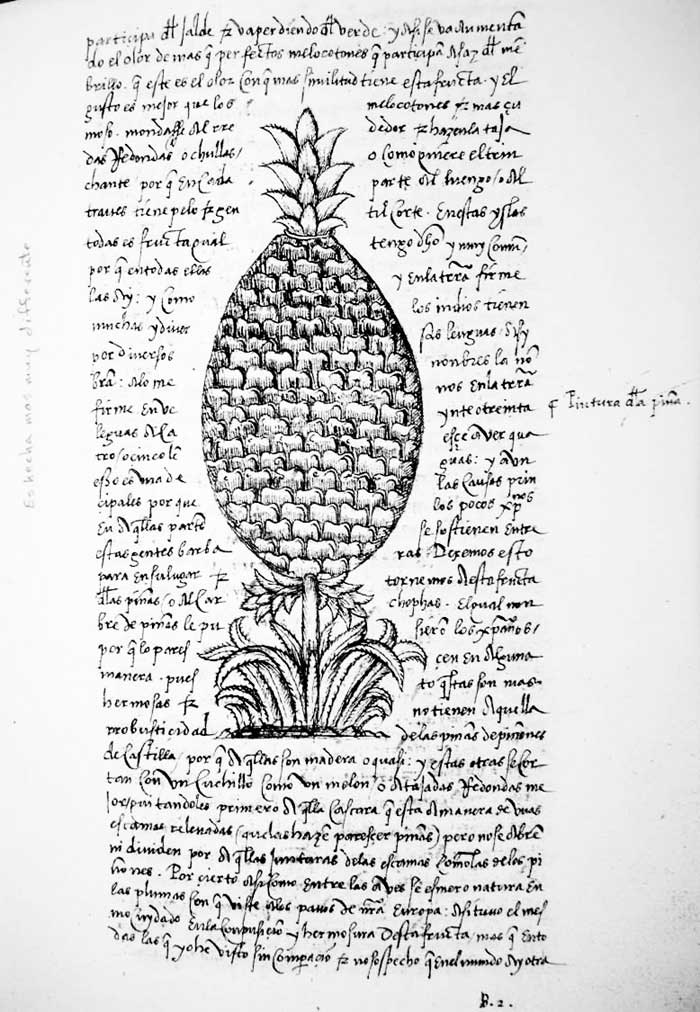 participa dl̃ jalde & va perdiendo dl̃ verde. y Asi se va Aumentã
do el olor de mas q̃ perfectos melocotones q̃ participã Asaz dl̃ mẽ
brillo. q̃ este es el olor con q̃ mas similitud tiene esta fructa. y El
gusto es mejor que los melocotones & mas çu
moso. mondasse Al rre dedor & hazenla taja
das Redondas o chullas / o como quiere el trin
chante / por q̃ En cada parte Al luengo / o Al
traues tiene pelo & gen til corte. En estas yslas
todas es fructa qual tengo dh̃o y muy comũ /
por q̃ en todas ellas y en la trrã firme
las Ay: y como los indios tienen
muchas y diver sas lenguas. Asy
por diversos nonbres la nõ
brã: Alo me nos En la trrã
firme En ve ynte o treinta
leguas Ala esçe Aver qua
tro o cinco lẽ guas: y Aun
esso es una de las causas prin
cipales por que los pocos xp̃nos
En Aq̃llas partes se sostienen Entre
estas gentes barba ras. Dexemos esto
para En su lugar & tornemos A esta fructa
dl̃as piñas / o Alcar chophas. El qual nom
bre de piñas le pu siero los xp̃anos /
por q̃ lo pares cen En Alguna
manera. pues to q̃stas son mas
hermosas & no tienen Aquella
rrobusticidad delas piñas de piñones
de Castilla / por q̃ Aq̃llas son madera o quasi: y estas otras se cor
tan con un cuchillo como un melon / o A tajadas Redondas me
jor / quitandoles primero Aq̃lla cascara q̃ esta A manera de unas
escamas relevadas (que las hazẽ parescer piñas) pero no se Abrẽ
ni dividen por Aq̃llas junturas delas escamas como las de los pi
ñones. Por cierto Asi como Entre las Aves se esmero natura En
las plumas con q̃ viste Alos pavos de nr̃a Europa: Asi tuvo el mes
mo cuydado En la composiciõ y hermosura Desta fructa / mas q̃ En to
das las q̃ yo he visto sin comparaçiõ & no sospecho q̃ en el mundo Ay otra
¶ Pintura dl̃a piña.
Es hecha mas muy differente
B. 2.